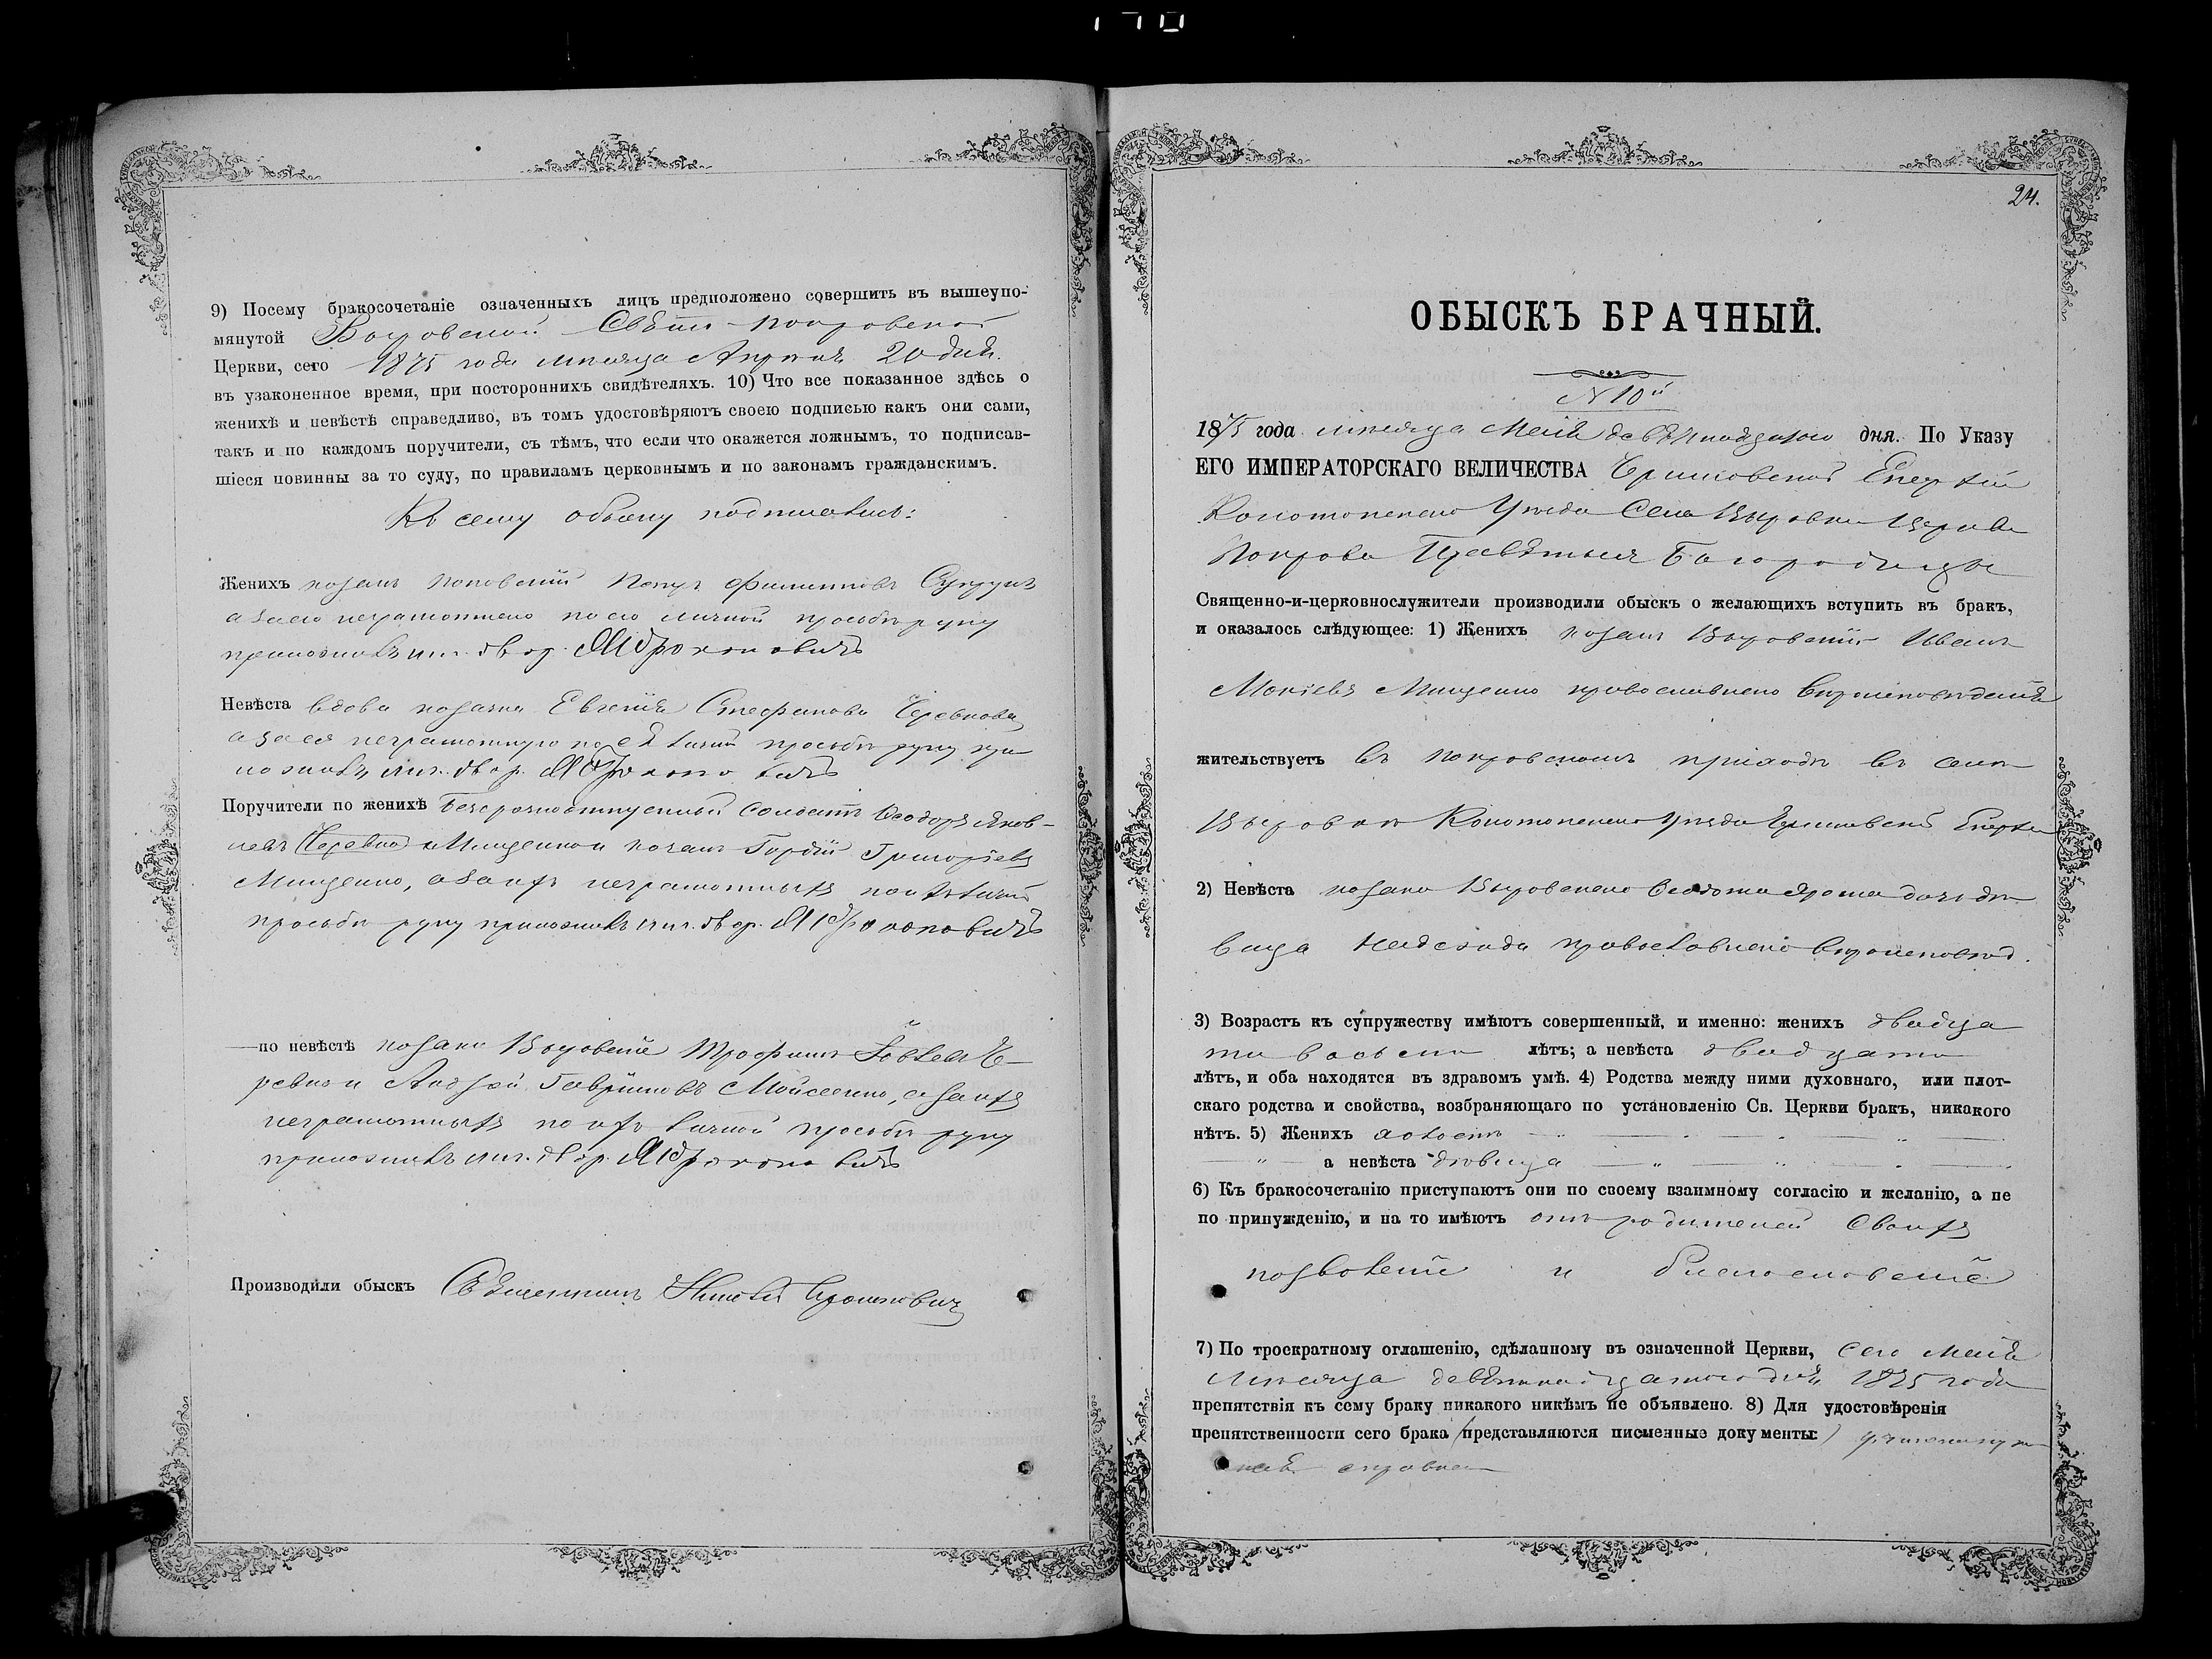 9) Посему бракосочетаніе означенныхъ лицъ предположено совершить въ вышеупо-
мянутой Выровской Свято-Покровской
Церкви, сего 1875 года мѣсяца Апрѣля 20 дня.
въ узаконенное время, при постороннихъ свидѣтеляхъ. 10) Что все показанное здѣсь о
женихѣ и невѣстѣ справедливо, въ томъ удостовѣряютъ своею подписью какъ они сами,
такъ и по каждомъ поручители, съ тѣмъ, что если что окажется ложнымъ, то подписав-
шіеся повинны за то суду, по правиламъ церковнымъ и по законамъ гражданскимъ.
Къ сему обыску подписались:
Женихъ козакъ Поповскій Филиповъ
а за его неграмотнаго по его личной просьбѣ руку
приложилъ
Невѣста вдова козачка Евгенія Стефанова Черевкова
а за ея неграмотную по ея личной просьбѣ руку при
ложилъ
Поручители по женихѣ Безсрочноотпускный Солдатъ Ѳеодоръ Яков-
левъ Черевко и козакъ Гордій Григоріевъ
Мищенко, а за ихъ неграмотныхъ по ихъ личной
просьбѣ руку приложилъ
по невѣстѣ козаки Выровскіе Трофимъ Іовлевъ Че-
ревко и Андрей Гавріиловъ Мойсеенко, а за ихъ
неграмотныхъ по ихъ личной просьбѣ руку
приложилъ
Производили обыскъ Священникъ
24.
ОБЫСКЪ БРАЧНЫЙ.
№ 10й
1875 года мѣсяца Маія девятнадцатого дня. По Указу
ЕГО ИМПЕРАТОРСКАГО ВЕЛИЧЕСТВА Черниговской Епархіи
Конотопскаго Уѣзда Села Выровки Церкви
Покрова Пресвятыя Богородицы
Священно-и-церковнослужители производили обыскъ о желающихъ вступить въ бракъ,
и оказалось слѣдующее: 1) Женихъ козакъ Выровскій Иванъ
Мокіевъ Мищенко православнаго вѣроисповѣданія
жительствуетъ въ Покровскомъ приходѣ въ селѣ
Выровкѣ Конотопскаго Уѣзда Черниговской Епархіи
2) Невѣста козака Выровскаго дочь дѣ
вица Надежда православнаго вѣроисповѣд.
3) Возрастъ къ супружеству имѣютъ совершенный, и именно: женихъ двадца
ти восьми лѣтъ; а невѣста двадцати
лѣтъ, и оба находятся въ здравомъ умѣ. 4) Родства между ними духовнаго, или плот-
скаго родства и свойства, возбраняющаго по установленію Св. Церкви бракъ, никакого
нѣтъ. 5) Женихъ холостъ
а невѣста дѣвица
6) Къ бракосочетанію приступаютъ они по своему взаимному согласію и желанію, а не
по принужденію, и на то имѣютъ отъ родителей своихъ
позволеніе и благословеніе
7) По троекратному оглашенію, сдѣланному въ означенной Церкви, сего Маія
мѣсяца девятнадцатого дня 1875 года
препятствія къ сему браку никакого никѣмъ не объявлено. 8) Для удостовѣренія
препятственности сего брака (представляются писменные документы:)
справка